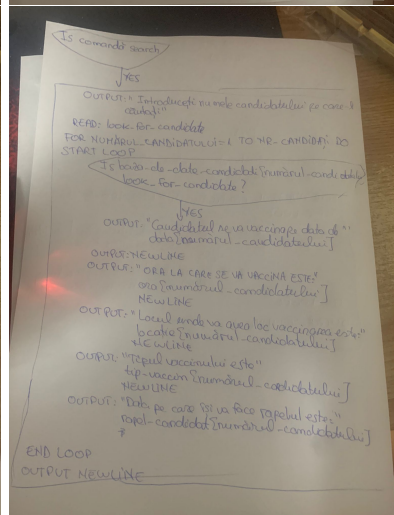 Is comanda search
YES
OUTPUT: "Introduceți numele candidatului pe care-l
căutați"
READ: look_for_candidate
FOR NUMĂRUL_CANDIDATULUI=1 TO NR_CANDIDAȚI DO
START LOOP
Is baza-de-date-candidate[numărul-candidatului]
look_for_candidate?
YES
OUTPUT: "Candidatul se va vaccina pe data de"
data[numărul-candidatului]
OUTPUT: NEWLINE
OUTPUT: "ORA LA CARE SE VA VACCINA ESTE:"
ora[numărul-candidatului]
NEWLINE
OUTPUT: "Locul unde va avea loc vaccinarea este:"
locatie[numărul-candidatului]
NEWLINE
OUTPUT: "Tipul vaccinului este"
tip-vaccin[numărul-candidatului]
NEWLINE
OUTPUT: "Data pe care își va face rapelul este:"
rapel-candidat[numărul-candidatului]
END LOOP
OUTPUT NEWLINE